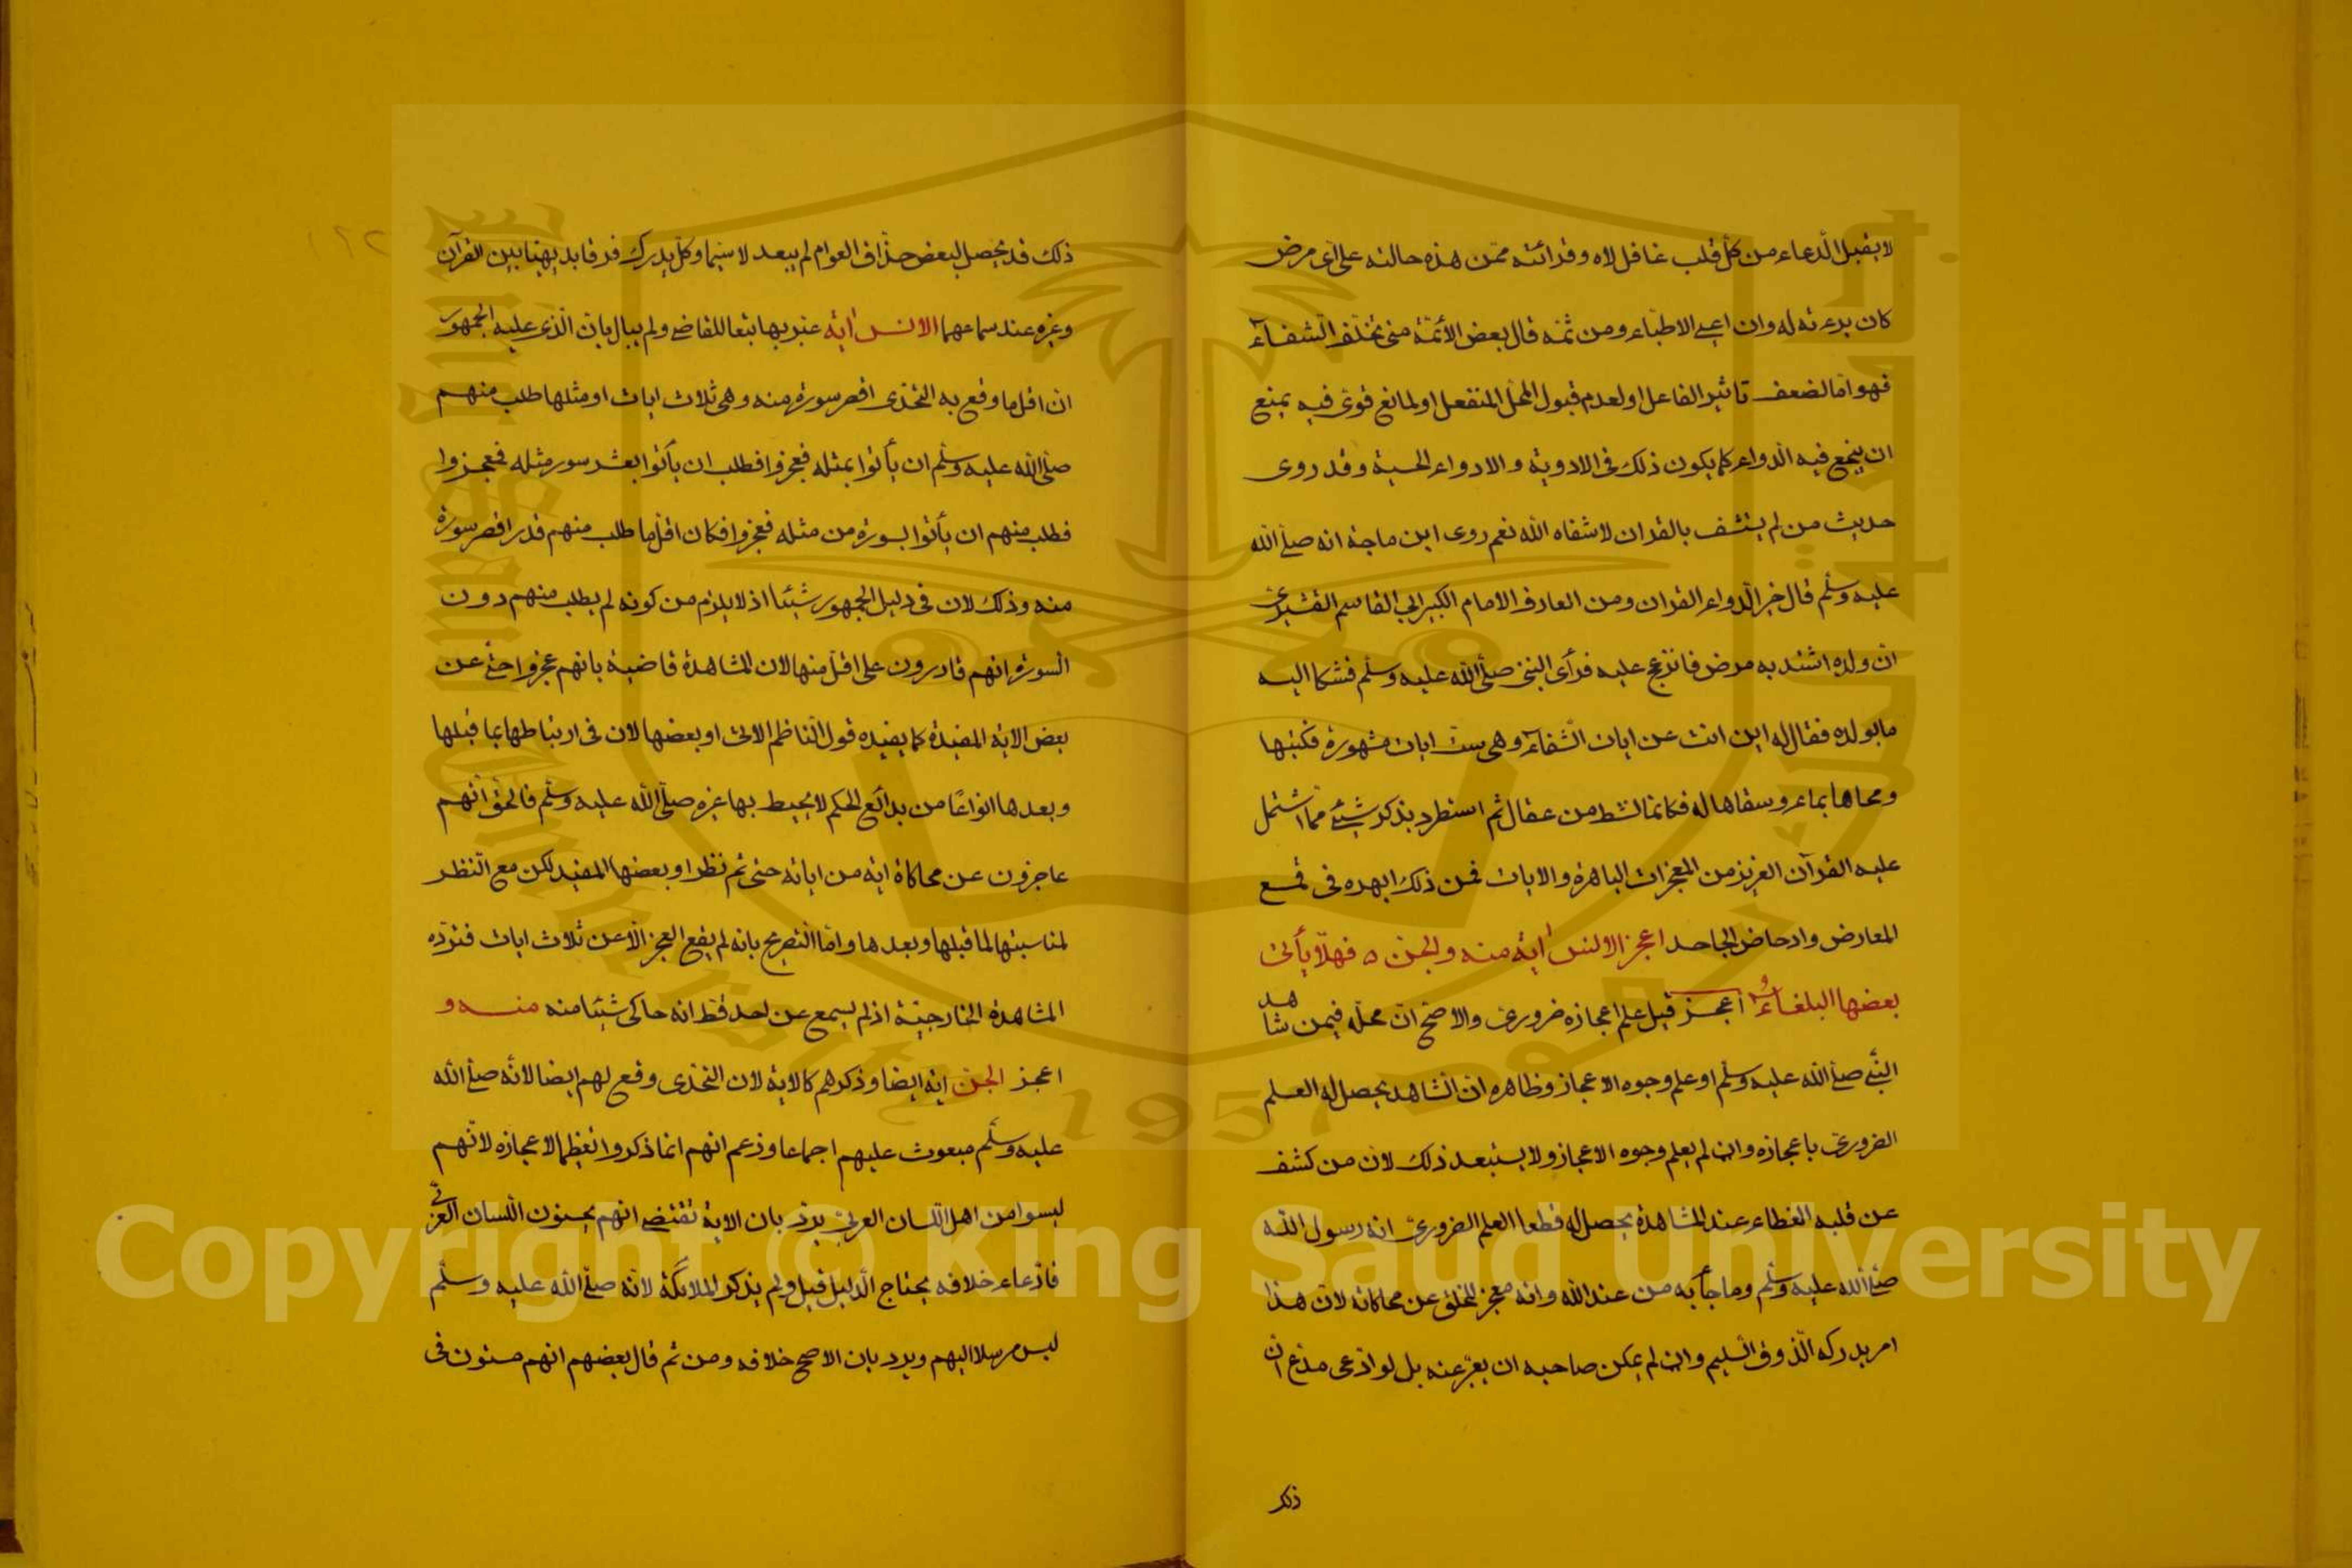 لا يقبل الدعاء من كل قلب غافل لاه وقرائته ممن هذه حالته على اى مرض
كان برءته له وان اعيى الاطباء ومن ثمه قال بعض الأئمة متى تخلف الشفاء
فهو اما لضعف تاثير الفاعل او لعدم قبول المحل المنفعل او لمانع قوى فيه يمنع
ان ينجع فيه الدواء كما يكون ذلك فى الادوية والادواء الحسية وقد روى
حديث من لم يستشف بالقران لا شفاه الله نعم روى ابن ماجة انه صلى الله
عليه وسلم قال خير الدواء القران ومن العارف الامام الكبير ابي القاسم القشيرى
ان ولده اشتد به مرض فانزعج عليه فرأى النبى صلى الله عليه وسلم فشكا اليه
ما بولده فقال له اين انت عن ايات الشفاء وهى ست ايات مشهورة فكتبها
ومحاها بماء وسقاها له فكانما نشط من عقال ثم استطرد بذكر شيئ مما اشتمل
عليه القرآن العزيز من المعجزات الباهرة والايات فمن ذلك ابهره فى قمع
المعارض وادحاض الجاحد اعجز الانس اية منه والجن ٥ فهلا يأتى
بعضها البلغاءُ أعجز قيل علم اعجازه ضرورى والاصح ان محله فيمن شاهد
النبى صلى الله عليه وسلم او علم وجوه الاعجاز وظاهره ان الشاهد يحصل له العلم
الضرورى باعجازه وان لم يعلم وجوه الاعجاز ولا يستبعد ذلك لان من كشف
عن قلبه الغطاء عند المشاهدة يحصل له قطعا العلم الضرورى انه رسول الله
صلى الله عليه وسلم وما جاء به من عند الله وانه معجز للخلق عن محاكاته لان هذا
امر يدركه الذوق السليم وان لم يمكن صاحبه ان يعبر عنه بل لو ادعى مدع ان
ذلك
ذلك قد يحصل لبعض حذاق العوام لم يبعد لا سيما وكل يدرك فرقا بديهيا بين القرآن
وغيره عند سماعهما الانس اية عبر بها تبعا للقاضى ولم يبال بان الذى عليه الجمهور
ان اقل ما وقع به التحدى اقصر سورة منه وهى ثلاث ايات او مثلها طلب منهم
صلى الله عليه وسلم ان يأتوا بمثله فعجزوا فطلب ان يأتوا بعشر سور مثله فعجزوا
فطلب منهم ان يأتوا بسورة من مثله فعجزوا فكان اقل ما طلب منهم قدر اقصر سورة
منه وذلك لان فى دليل الجمهور شيئا اذ لا يلزم من كونه لم يطلب منهم دون
السورة انهم قادرون على اقل منها لان المشاهدة قاضية بانهم عجزوا حتى عن
بعض الاية المفيدة كما يفيده قول الناظم الاتى او بعضها لان فى ارتباطها بما قبلها
وبعدها انواعًا من بدائع الحكم لا يحيط بها غيره صلى الله عليه وسلم فالحق انهم
عاجزون عن محاكاة اية من اياته حتى ثم نظر او بعضها المفيد لكن مع النظر
لمناسبتها لما قبلها وبعدها واما التصريح بانه لم يقع العجز الا عن ثلاث ايات فترده
المشاهدة الخارجية اذ لم يسمع عن احد قط انه حاكى شيئا منه منه و
اعجز الجن اية ايضا وذكرهم كالاية لان التحدى وقع لهم ايضا لانه صلى الله
عليه وسلم مبعوث عليهم اجماعا وزعم انهم انما ذكروا تعظيما لاعجازه لانهم
ليسوا من اهل اللسان العربى يرد بان الاية تقتضى انهم يحسنون اللسان العربى
فادعاء خلافه يحتاج الدليل قيل ولم يذكر الملائكة لانه صلى الله عليه وسلم
ليس مرسلا اليهم ويرد بان الاصح خلافه ومن ثم قال بعضهم انهم منون فى
Copyright © King Saud University
King Saud University
1957